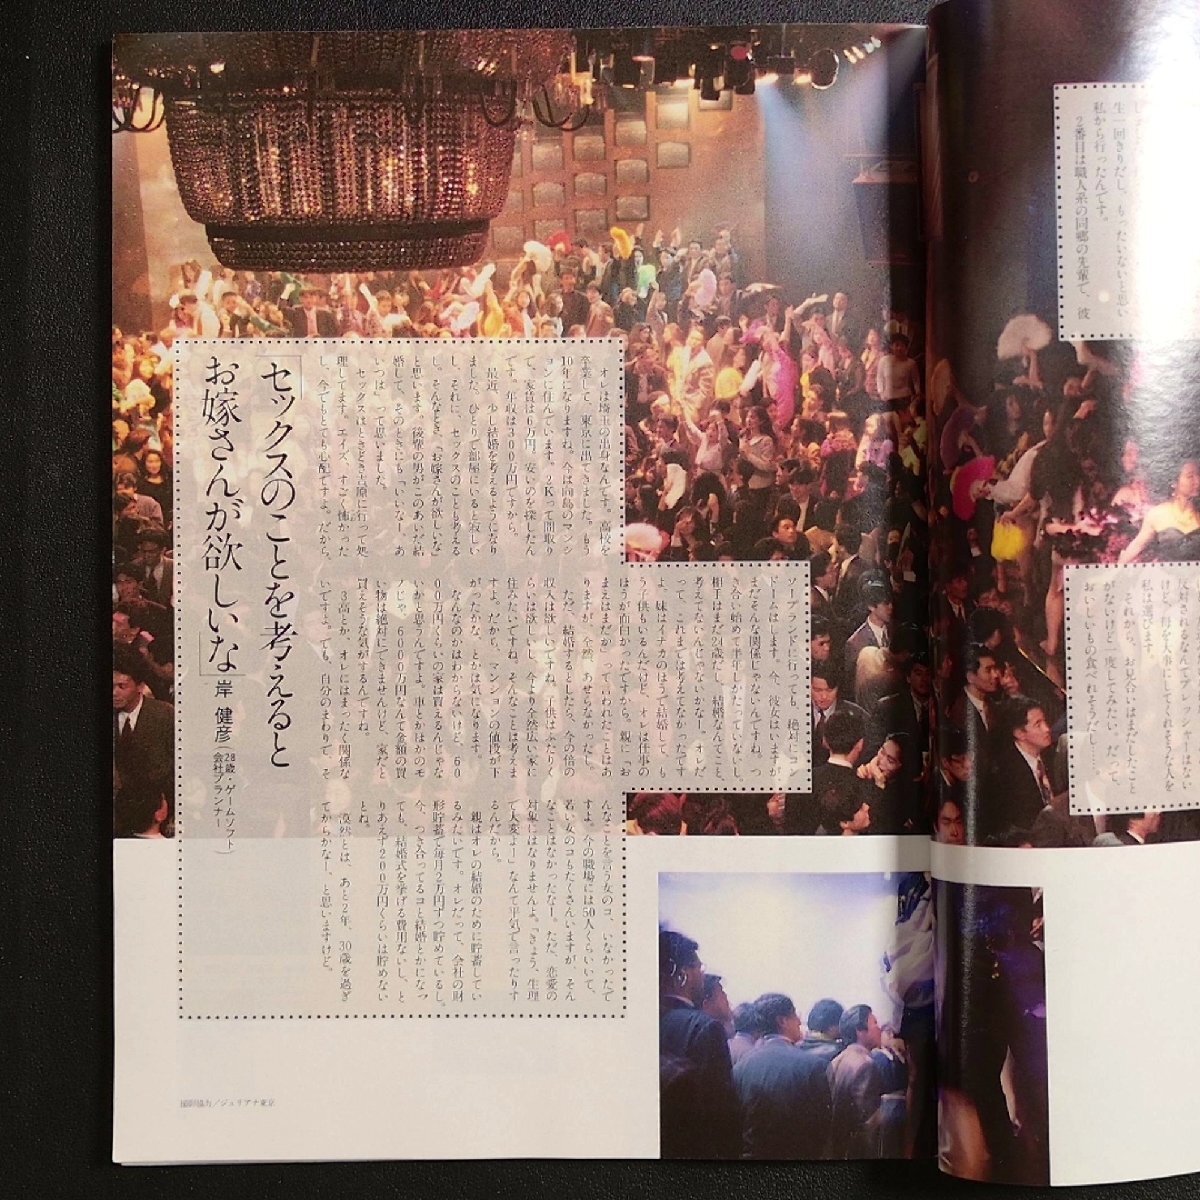 し
生一回きりだし、もったいないと思い
私から行ったんです。
2番目は職人系の同郷の先輩で、彼
反対されるなんてプレッシャーはない
けど、母を大事にしてくれそうな人を
私は選びます。
それから、お見合いはまだしたこと
がないけど一度してみたい。だって、
おいしいもの食べれそうだし……
「セックスのことを考えると
お嫁さんが欲しいな」
岸 健彦
(28歳・ゲームソフト
会社プランナー)
オレは埼玉の出身なんです。高校を
卒業して、東京に出てきました。もう
10年になりますね。今は向島のマンシ
ョンに住んでいます。2Kって間取り
で、家賃は6万円、安いのを探したん
です。年収は300万円ですから。
最近、少し結婚を考えるようになり
ました。ひとりで部屋にいると寂しい
し、それに、セックスのことも考える
し。そんなとき、「お嫁さんが欲しいな」
と思います。後輩の男がこのあいだ結
婚して、そのときにも「いいなー、あ
いつは」って思いました。
セックスはときどき吉原に行って処
理してます。エイズ、すごく怖かった
し、今でもとても心配ですよ。だから、
ソープランドに行っても、絶対にコン
ドームはします。今、彼女はいますが、
まだそんな関係じゃないんですね。つ
き合い始めて半年しかたっていないし、
相手はまだ24歳だし、結婚なんてこと、
考えてないんじゃないかなー。オレだ
って、これまでは考えてなかったです
よ。妹はイチカのほうで結婚して、も
う子供もいるんだけど、オレは仕事の
ほうが面白かったですから。親に「お
まえはまだか」って言われたことはあ
りますが、全然、あせらなかったし。
ただ、結婚するとしたら、今の倍の
収入は欲しいですね。子供はふたりく
らいは欲しいし、今より全然広い家に
住みたいですね。そんなことは考えま
すよ。だから、マンションの値段が下
がったかな、とかは気になります。
なんなのかはわからないけど、60
00万円くらいの家は買えるんじゃな
いかと思うんですよ。車とかほかのモ
ノじゃ、6000万円なんて金額の買
い物は絶対にできませんけど、家だと
買えそうな気がするんですね。
3高とか、オレにはまったく関係な
いですよ。でも、自分のまわりで、そ
んなことを言う女のコ、いなかったで
すよ。今の職場には50人くらいいて、
若い女のコもたくさんいますが、そん
なことはなかったなー。ただ、恋愛の
対象にはなりませんよ。「きょう、生理
で大変よー」なんて平気で言ったりす
るんだから。
親はオレの結婚のために貯蓄してい
るみたいです。オレだって、会社の財
形貯蓄で毎月2万円ずつ貯めているし。
今、つき合ってるコと結婚とかになっ
ても、結婚式を挙げる費用ないし、と
りあえず200万円くらいは貯めない
とね。
漠然とは、あと2年、30歳を過ぎ
てからかなー、と思いますけど。
撮影協力/ジュリアナ東京